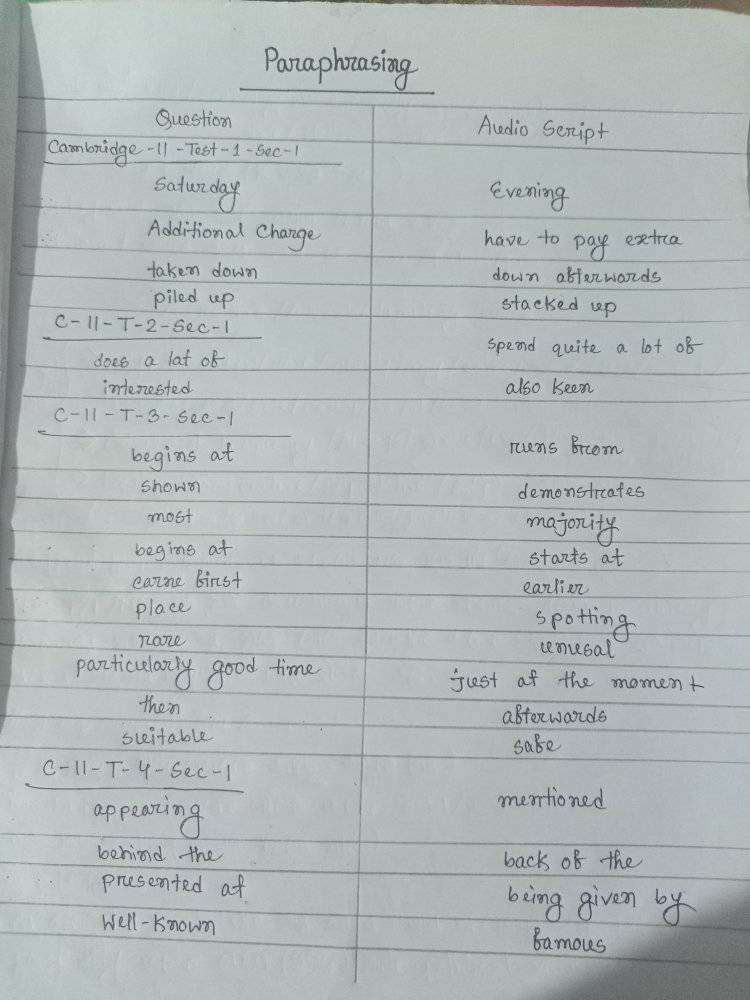 Paraphrasing
Question Audio Script
Cambridge-11-Test-1-Sec-1
Saturday Evening
Additional Charge have to pay extra
taken down down afterwards
piled up stacked up
C-11-T-2-Sec-1
does a lat of spend quite a lot of
interested also keen
C-11-T-3-Sec-1
begins at runs from
shown demonstrates
most majority
begins at starts at
came first earlier
place spotting
rare unusal
particularly good time just at the moment
then afterwards
suitable safe
C-11-T-4-Sec-1
appearing mentioned
behind the back of the
presented at being given by
Well-Known famous